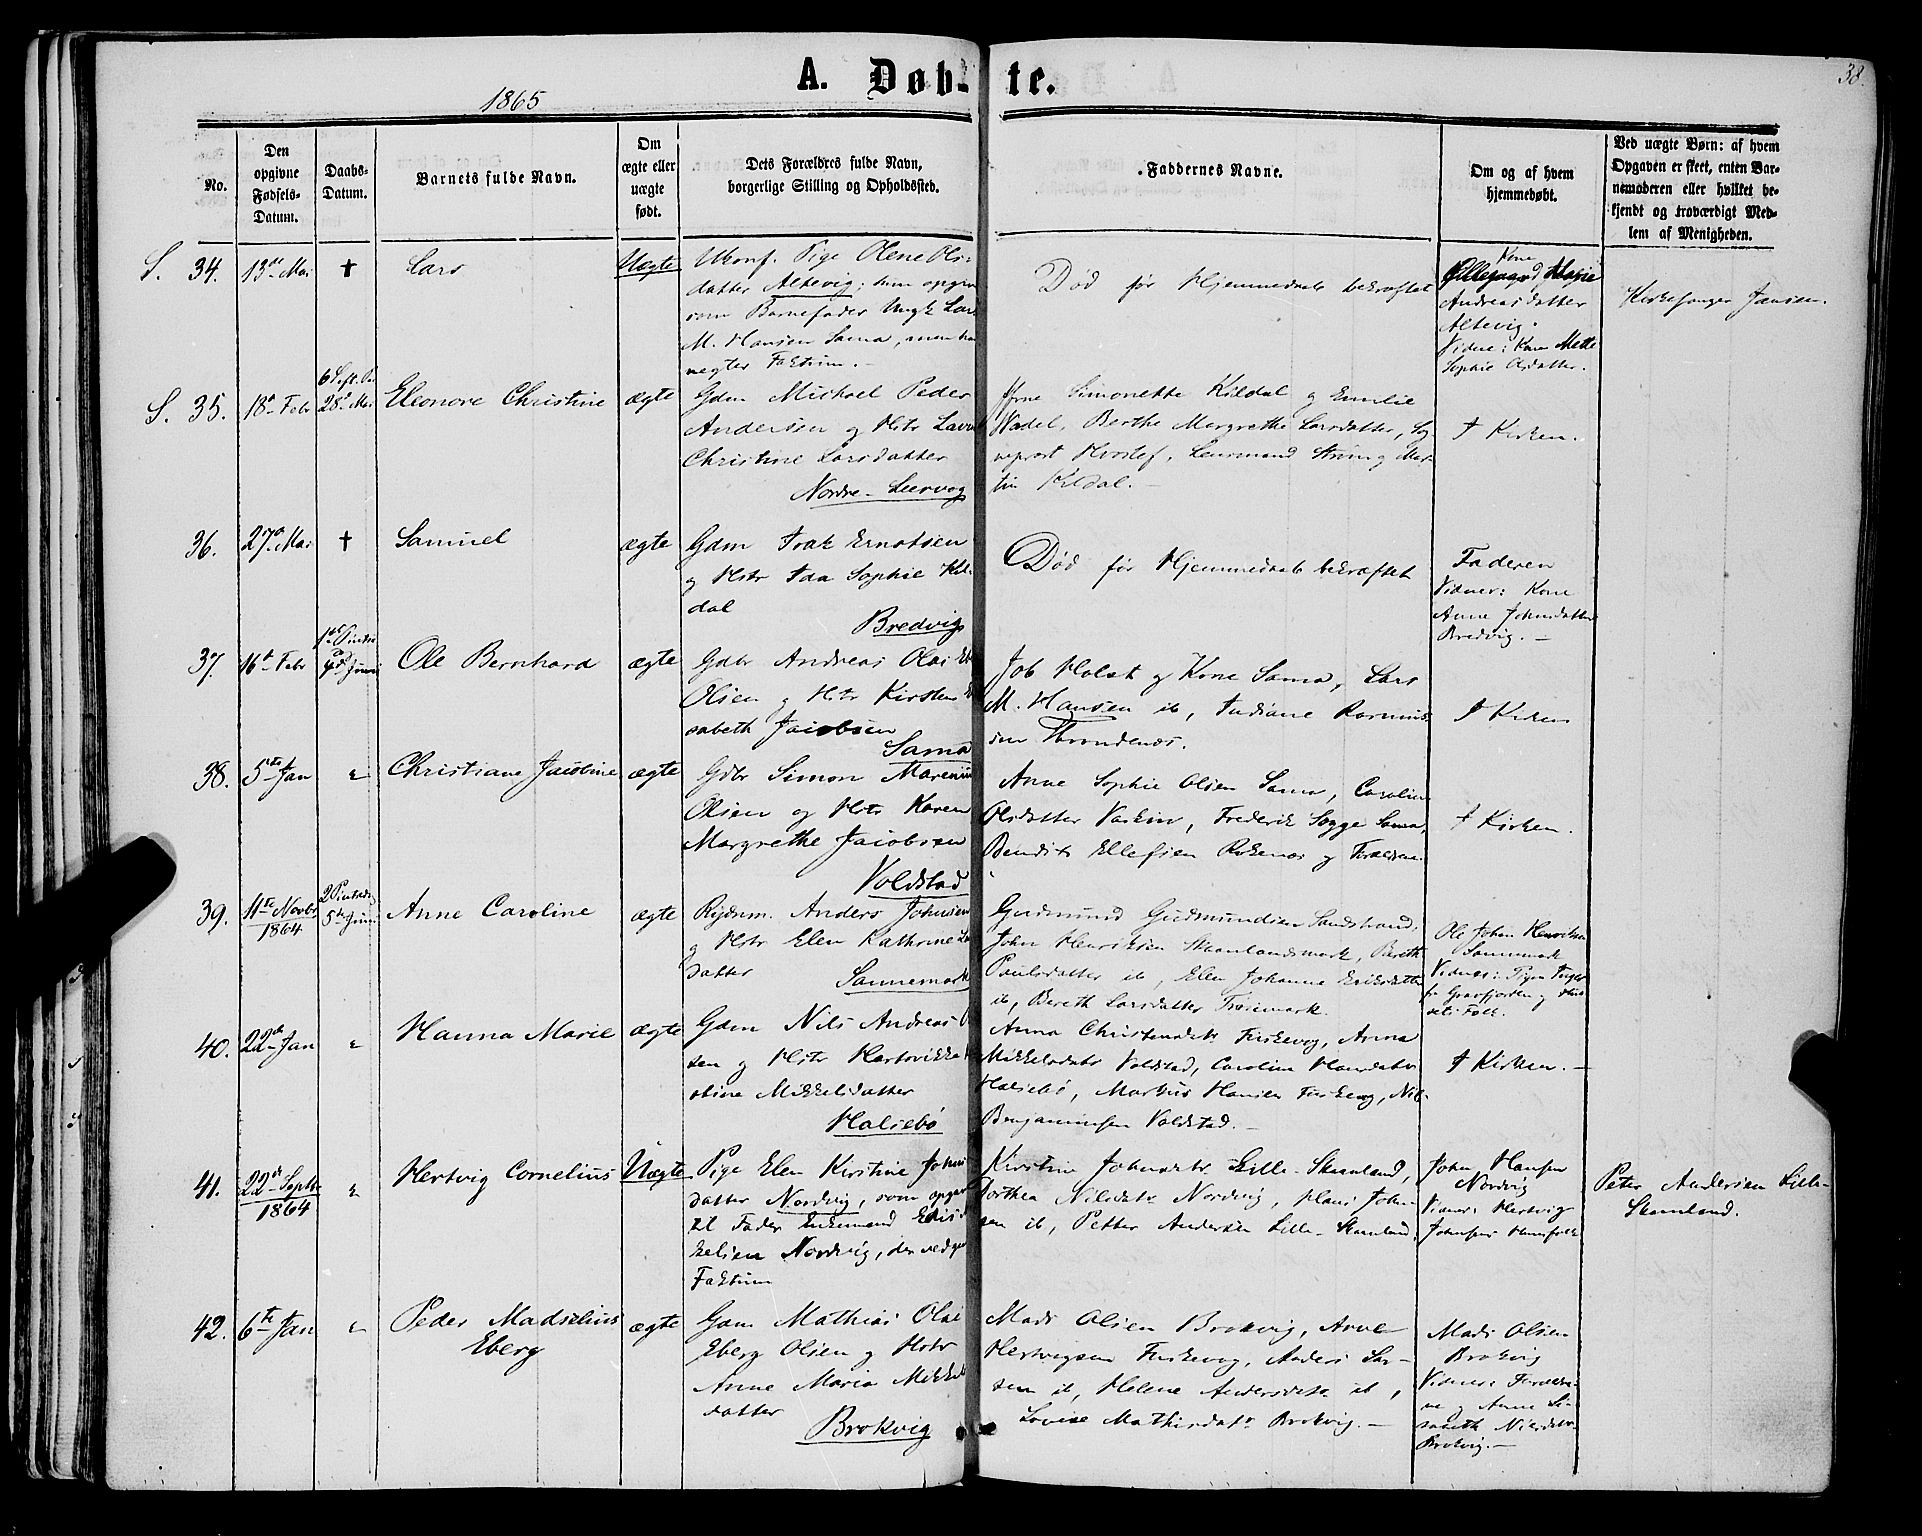 38.
1865
A. Døb-te.
No.
Den opgivne Fødsels-Datum.
Daabs-Datum.
Barnets fulde Navn.
Om ægte eller uægte født.
Dets Forældres fulde Navn, borgerlige Stilling og Opholdssted.
Faddernes Navne.
Om og af hvem hjemmedøbt.
Ved uægte Børn: af hvem Opgaven er skeet, enten Barnemoderen eller hvilket bekjendt og troværdigt Medlem af Menigheden.
S. 34. 13de Mai † Lars Uægte
Ukonf. Pige Olene Ols-
datter Altevig; hun opgiv
som Barnefader Ungk. Lars
M. Hansen Sama, men han
negter Faktum.-
Død før Hjemmedaab bekræftet
Kone
Andreasdatter
Altevig.
Vidne: Kone Mette
Sophie Olsdatter.
Kirkesanger Jansen.
S. 35. 18de Febr 28de Mai Eleonore Christine ægte
Gdm Michael Peder
Anderssen og Hstr Lavra
Christine Larsdatter
Nordre-Leervog
Simonette Kildal og Emilie
Wadel, Berthe Margrethe Larsdatter, Sog-
neprost Hvoslef, Lensmand Strøm og Mar-
tin Kildal.-
I Kirken.
36. 27de Mai † Samuel ægte
Gdm Isak Ernstsen
og Hstr Ida Sophie Kil-
dal
Bredvig
Død før Hjemmedaab bekræftet
Faderen
Vidner: Kone
Anne Johnsdatter
Bredvig.-
37. 16de Febr 1ste Pindsed. 4de Juni Ole Bernhard ægte
Gdbr Andreas Olai
Olsen og Hstr Kirsten
sabeth Jacobsen
Sama
Job Holst og Kone Sama, Lars
M. Hansen ib, Indiane Rasmus-
sen Throndenæs.
I Kirken
38. 5te Jan " Christiane Jacobine ægte
Gdbr Simon Marenius
Olsen og Hstr Karen
Margrethe Jacobsen
Voldstad
Anne Sophie Olsen Sama, Caroline
Olsdatter, Frederik Sama,
Bendik Ellefsen og Forældrene.
I Kirken.
39. 11te Novbr 1864 2 Pintsed. 5te Juni Anne Caroline ægte
Anders Johnsen
og Hstr Elen Kathrine
datter
Sannemark
Gudmund Gudmundsen Sandstrand,
John Henriksen Skaanlandsmark, Bereth
Paulsdatter ib, Elen Johanne Eriksdatter
ib, Bereth Larsdatter
Ole Johan Henriksen
Sannemark
Vidner: Pigen
fra Gravfjorden og
Folk.
40. 22de Jan " Hanna Marie ægte
Gdm Nils Andreas
sen og Hstr Hertvikke
stine Mikkelsdatter
Halsebø
Anna Christensdatr Fuskevog, Anna
Mikkelsdatr Voldstad, Caroline Hansdatr
Halsebø, Markus Hansen Fuskevog, Nils
Benjaminsen Voldstad.-
I Kirken.-
41. 22de Septbr 1864 " Hertvig Cornelius Uægte
Pige Elen Kirstine Johns
datter Nordvig, som opgav
til Fader Enkemand
Nordvig, der vedgaar
Faktum
Kirstine Johnsdatr Lille-Skaanland,
Dorthea Nilsdatr Nordvig, Hans John-
sen ib, Petter Andersen Lille-Skaanland.
John Hansen
Nordvig
Vidner: Hertvig
Johnsens Huusfolk
Peter Andersen Lille-
Skaanland.
42. 6te Jan " Peder Madselius Eberg ægte
Gdm Mathias Olai
Eberg Olsen og Hstr
Anne Maria Mikkels
datter
Brokvig
Mads Olsen Brokvig, Arne
Hertvigsen Fuskevog, Anders Lar-
sen ib, Helene Andersdatr ib,
Lovise Mathisdatr Brokvig.-
Mads Olsen
Brokvig
Vidner: Forældre-
ne og Anne Li-
sabeth Nilsdatr
Brokvig.-